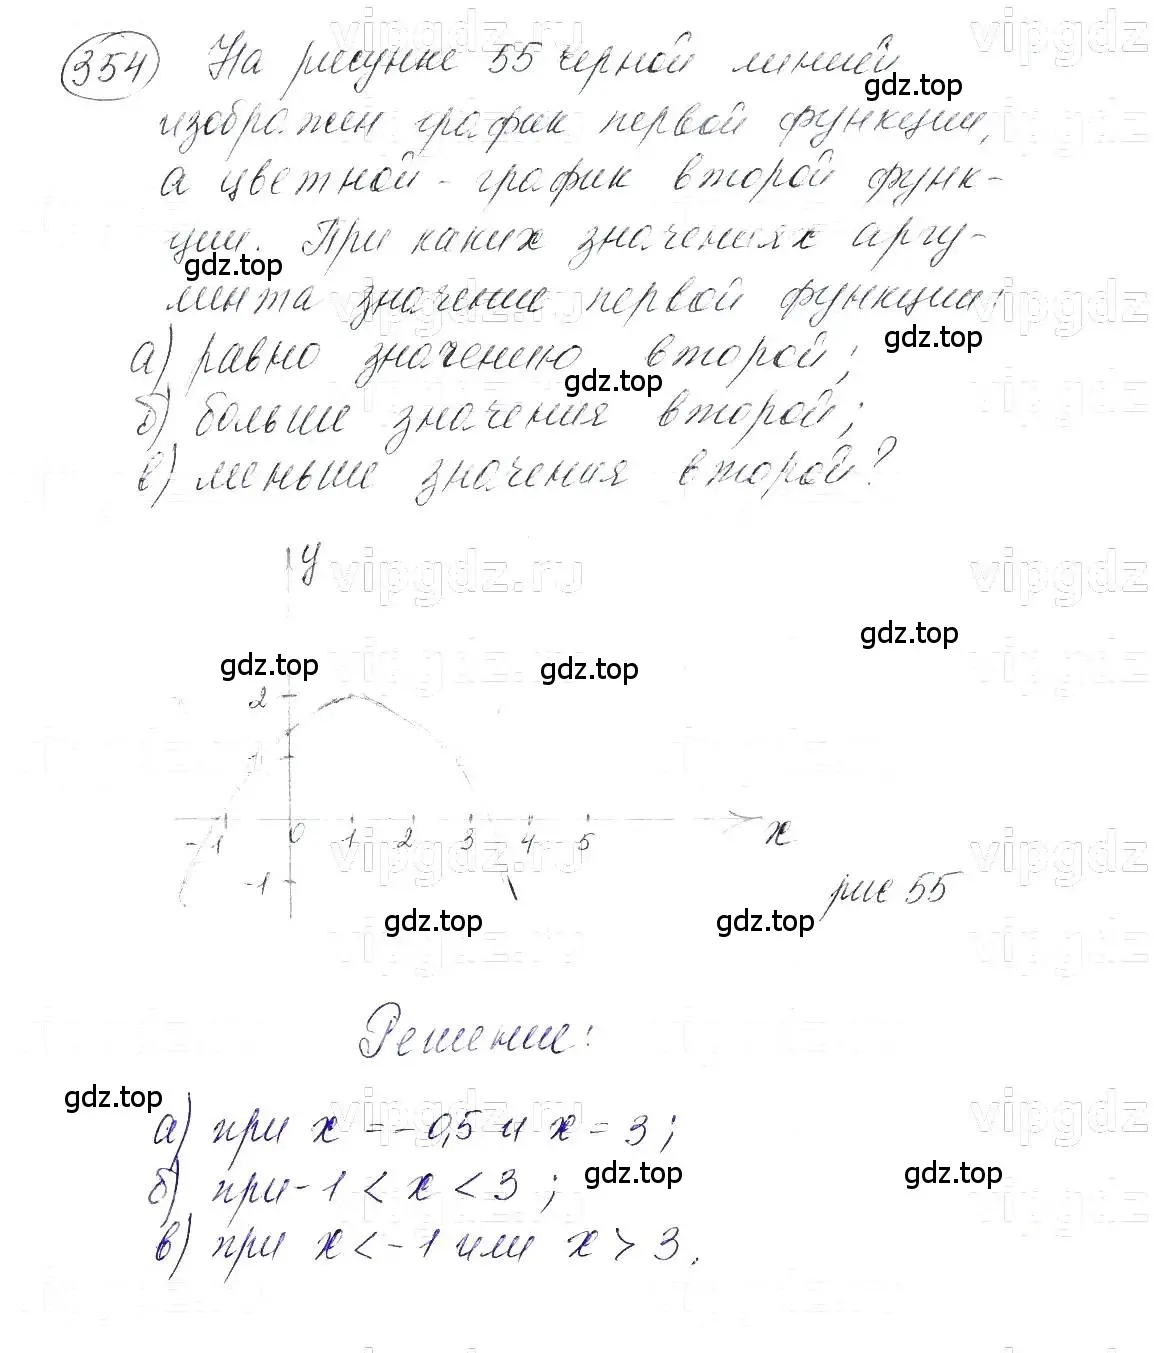 354 На рисунке 55 черной линией
изображен график первой функции,
а цветной - график второй функ-
ции. При каких значениях аргу-
мента значение первой функции:
а) равно значению второй;
б) больше значения второй;
в) меньше значения второй?
y
2
1
-1 0 1 2 3 4 5 x
-1
рис 55
Решение:
а) при x = -0,5 и x = 3;
б) при -1 < x < 3 ;
в) при x < -1 или x > 3.
gdz.top
gdz.top
gdz.top
gdz.top
gdz.top
gdz.top
gdz.top
gdz.top
gdz.top
gdz.top
gdz.top
gdz.top
vipgdz.ru
vipgdz
vipgdz.ru
vipgdz
vipgdz.ru
vipgdz
vipgdz.ru
vipgdz
vipgdz.ru
vipgdz